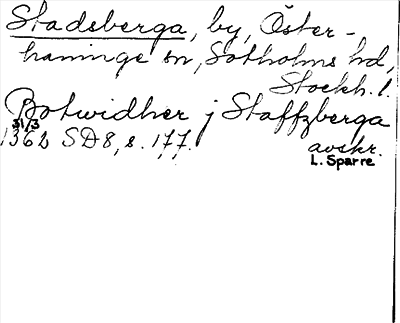 Stadsberga, by, Öster-
haninge sn, Sotholms hd,
Stockh. l.
Botwidher j Staffzberga
31/3
1362 SD 8, s. 177. avskr.
L. Sparre